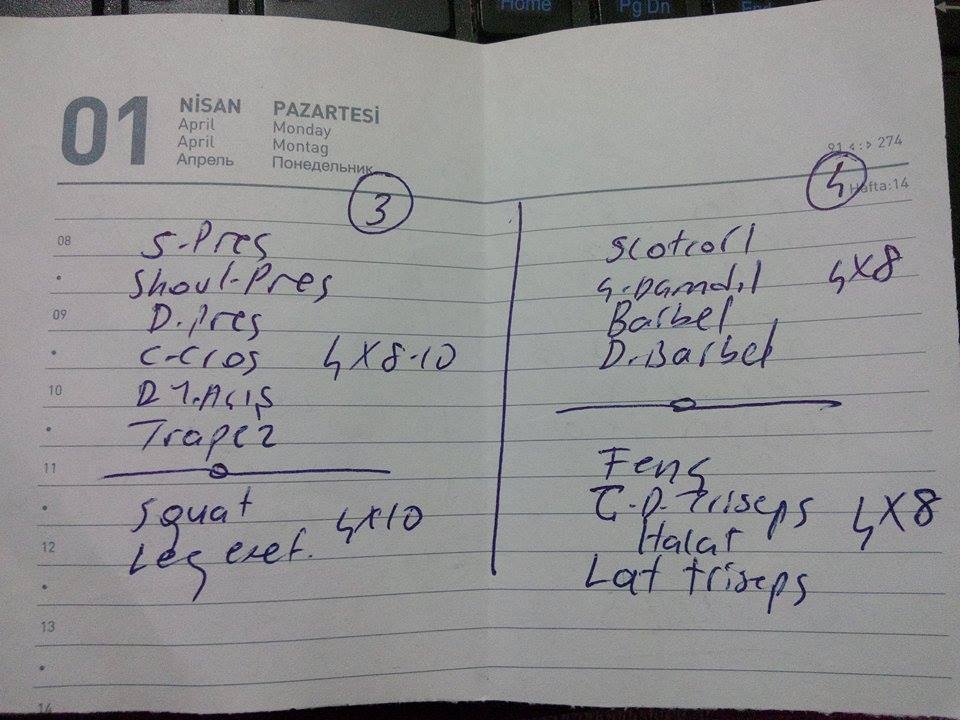 Home
Pg Dn
End
01
NİSAN
April
April
Апрель
PAZARTESİ
Monday
Montag
Понедельник
91 274
Hafta:14
3
08
S-Preş
Shoul-Preş
09
D.Preş
C-Cros 4X8-10
10
Açış
Trapez
11
Squat 4X10
12
Leg
13
14
4
Scotcorl
4X8
Barbel
D.Barbel
Feng
Triseps 4X8
Halat
Lat triseps